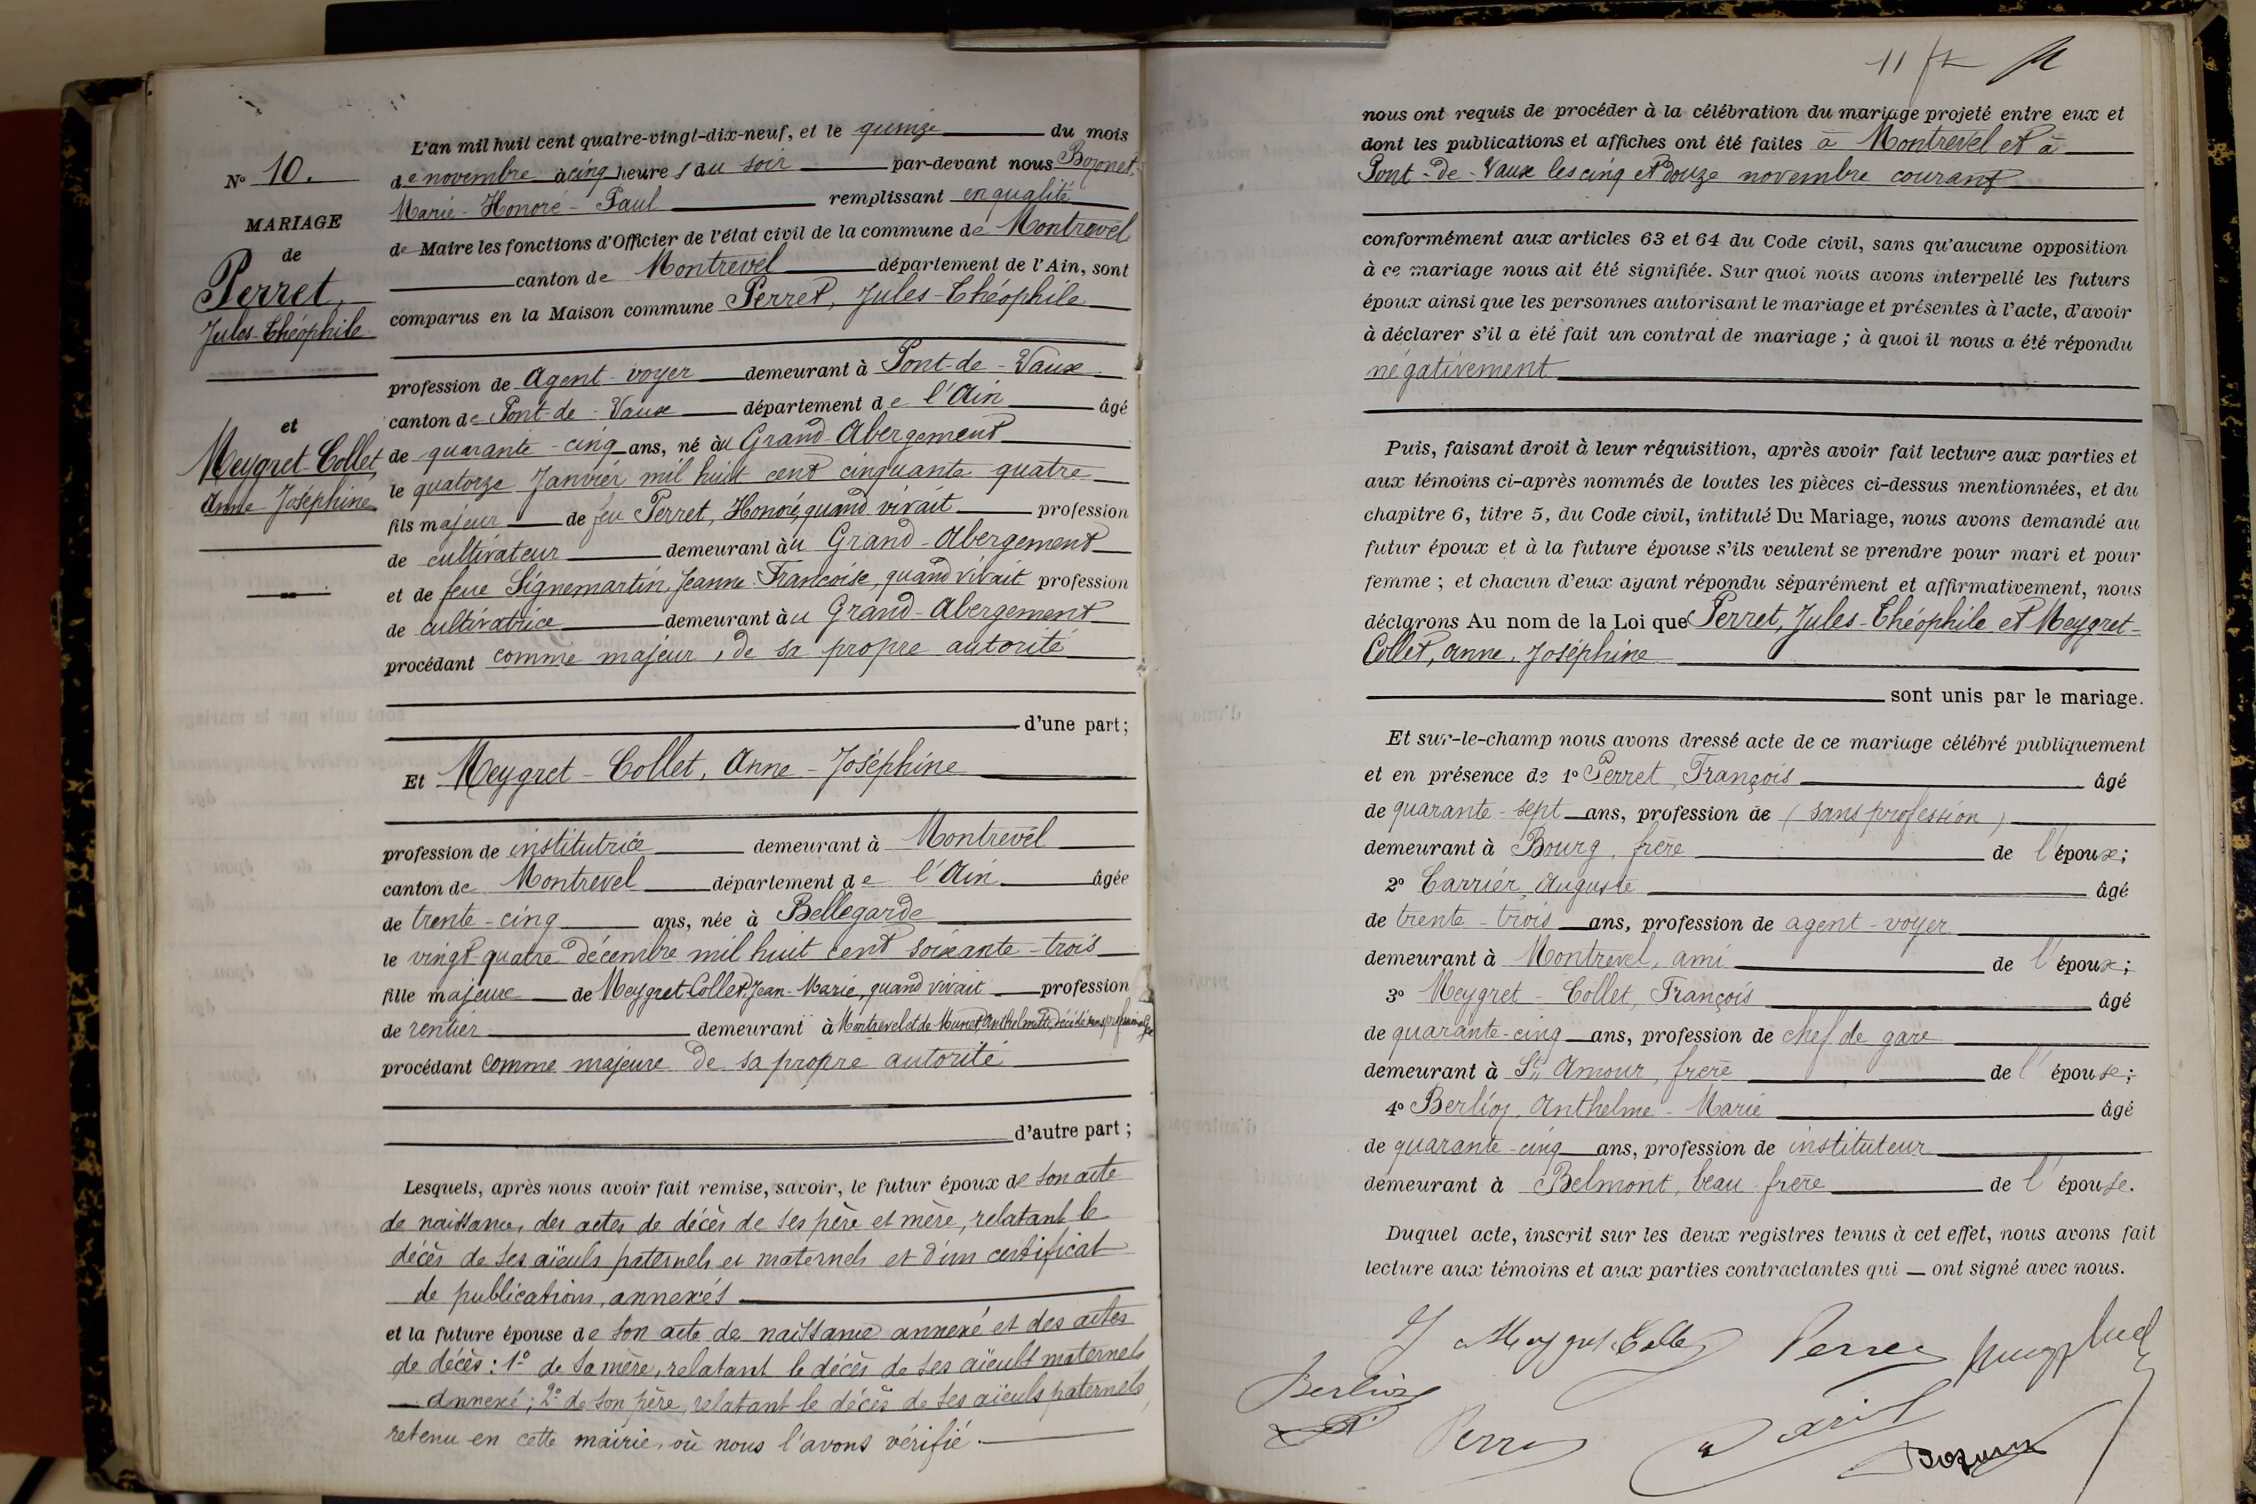 N° 10.
MARIAGE
de
Perret,
Jules-Théophile
et
Meygret-Collet,
Anne-Joséphine
L'an mil huit cent quatre-vingt-dix-neuf, et le quinze du mois
de novembre à cinq heures du soir par-devant nous Bozonet,
Marie-Honoré-Paul remplissant en qualité
de Maire les fonctions d'Officier de l'état civil de la commune de Montrevel
canton de Montrevel département de l'Ain, sont
comparus en la Maison commune Perret, Jules-Théophile
profession de Agent-voyer demeurant à Pont-de-Vaux
canton de Pont-de-Vaux département de l'Ain âgé
de quarante-cinq ans, né au Grand-Abergement
le quatorze Janvier mil huit cent cinquante quatre
fils majeur de feu Perret, Honoré, quand vivait profession
de cultivateur demeurant au Grand-Abergement
et de feue Signemartin, Jeanne-Francoise, quand vivait profession
de cultivatrice demeurant au Grand-Abergement
procédant comme majeur, de sa propre autorité
d'une part;
Et Meygret-Collet, Anne-Joséphine
profession de institutrice demeurant à Montrevel
canton de Montrevel département de l'Ain âgée
de trente-cinq ans, née à Bellegarde
le vingt-quatre décembre mil huit cent soixante-trois
fille majeure de Meygret-Collet, Jean-Marie, quand vivait profession
de rentier demeurant à Montrevel et de Munet Anthelmette, décédée sans
procédant comme majeure de sa propre autorité
d'autre part;
Lesquels, après nous avoir fait remise, savoir, le futur époux de son acte
de naissance, des actes de décès de ses père et mère, relatant le
décès de ses aïeuls paternels et maternels et d'un certificat
de publications, annexés
et la future épouse de son acte de naissance annexé et des actes
de décès: 1° de sa mère, relatant le décès de ses aïeuls maternels
annexé; 2° de son père, relatant le décès de ses aïeuls paternels,
retenu en cette mairie, où nous l'avons vérifié.
11
nous ont requis de procéder à la célébration du mariage projeté entre eux et
dont les publications et affiches ont été faites à Montrevel et à
Pont-de-Vaux les cinq et douze novembre courant
conformément aux articles 63 et 64 du Code civil, sans qu'aucune opposition
à ce mariage nous ait été signifiée. Sur quoi nous avons interpellé les futurs
époux ainsi que les personnes autorisant le mariage et présentes à l'acte, d'avoir
à déclarer s'il a été fait un contrat de mariage; à quoi il nous a été répondu
négativement
Puis, faisant droit à leur réquisition, après avoir fait lecture aux parties et
aux témoins ci-après nommés de toutes les pièces ci-dessus mentionnées, et du
chapitre 6, titre 5, du Code civil, intitulé Du Mariage, nous avons demandé au
futur époux et à la future épouse s'ils veulent se prendre pour mari et pour
femme; et chacun d'eux ayant répondu séparément et affirmativement, nous
déclarons Au nom de la Loi que Perret, Jules-Théophile et Meygret-
Collet, Anne, Joséphine
sont unis par le mariage.
Et sur-le-champ nous avons dressé acte de ce mariage célébré publiquement
et en présence de 1° Perret, François âgé
de quarante-sept ans, profession de (sans profession)
demeurant à Bourg, frère de l'époux;
2° Carrier Auguste âgé
de trente-trois ans, profession de agent-voyer
demeurant à Montrevel, ami de l'époux;
3° Meygret-Collet, François âgé
de quarante-cinq ans, profession de chef de gare
demeurant à St Amour, frère de l'épouse;
4° Berlioz, Anthelme-Marie âgé
de quarante-cinq ans, profession de instituteur
demeurant à Belmont, beau-frère de l'épouse.
Duquel acte, inscrit sur les deux registres tenus à cet effet, nous avons fait
lecture aux témoins et aux parties contractantes qui ont signé avec nous.
J Meygret-Collet Perret
Berlioz
Perret